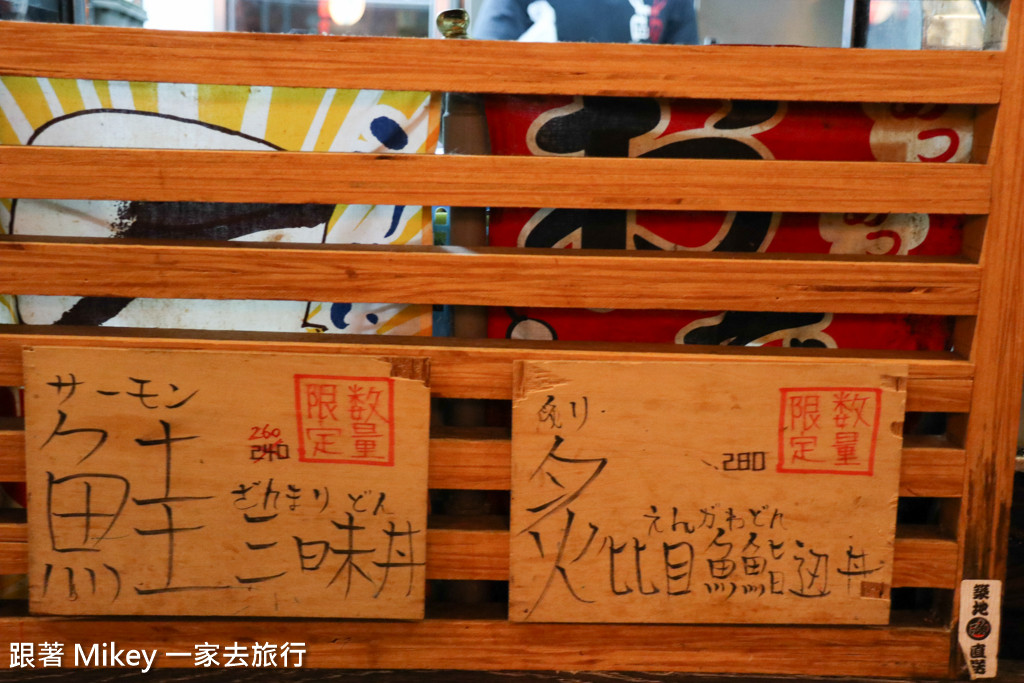 サーモン
鮭
数量
限定
260
240
ざんまりどん
三昧丼
炙り
数量
限定
280
炙
えんがわどん
比目魚鰭邊丼
築地
直送
跟著 Mikey 一家去旅行